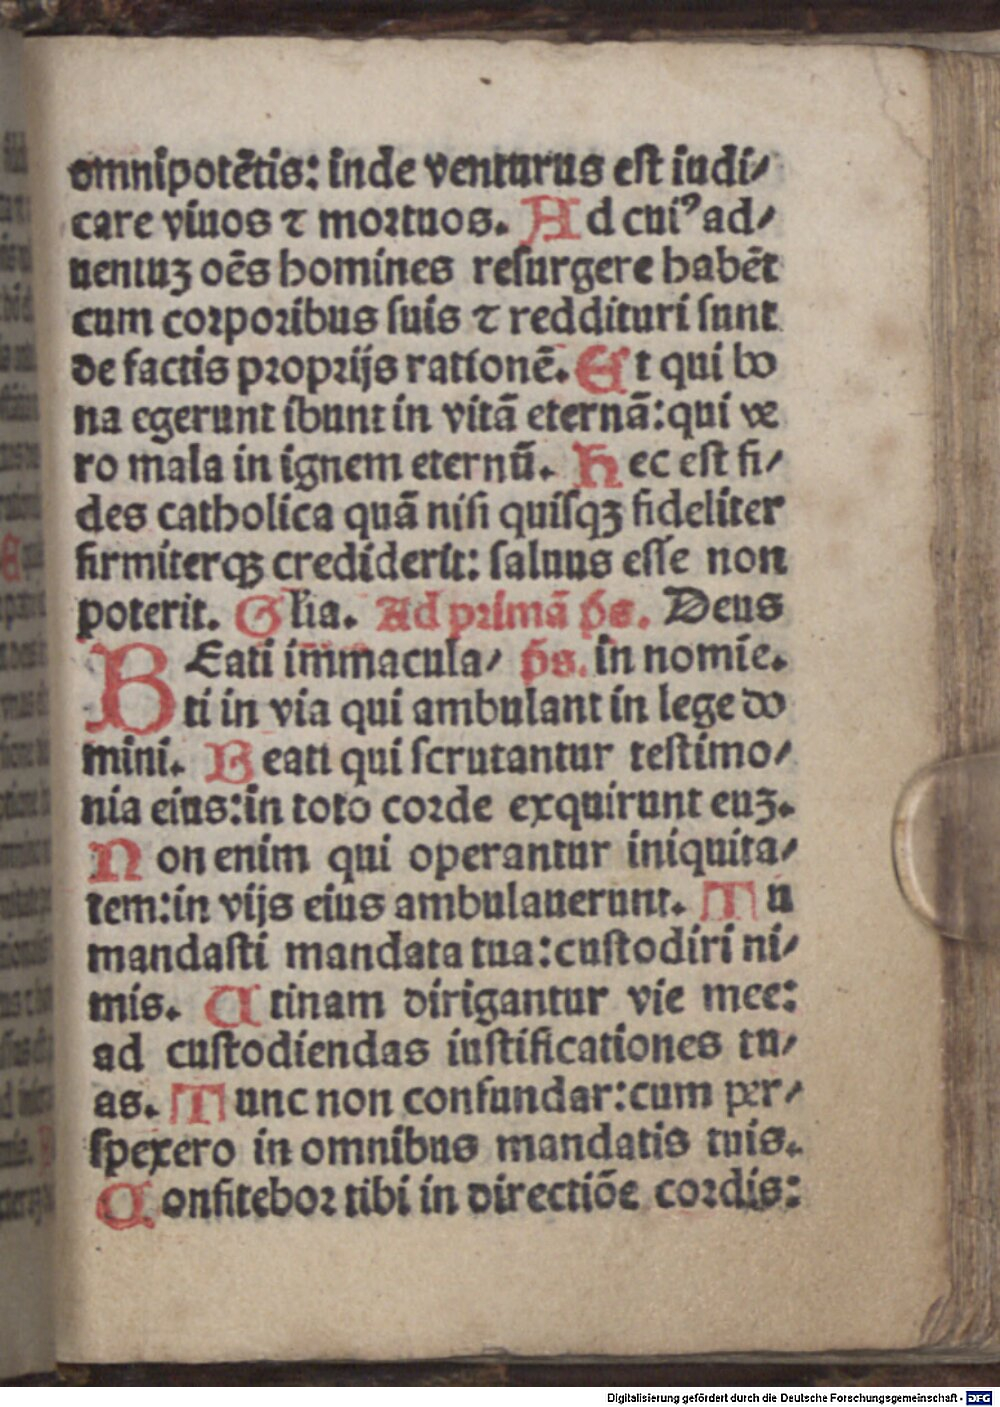 omnipotētis: inde venturus est iudi⸗
care viuos ⁊ mortuos. Ad cuiꝰ ad⸗
uentuꝫ oēs homines resurgere habēt
cum corporibus suis ⁊ reddituri sunt
de factis proprijs rationē. Et qui bo
na egerunt ibunt in vitā eternā: qui ve
ro mala in ignem eternū. Hec est fi⸗
des catholica quā nisi quisqꝫ fideliter
firmiterqꝫ crediderit: saluus esse non
poterit. Glia. Ad primā p̄s. Deus
BEati immacula⸗ p̄s. in nomie.
ti in via qui ambulant in lege do
mini. Beati qui scrutantur testimo⸗
nia eius: in toto corde exquirunt euꝫ.
Non enim qui operantur iniquita⸗
tem: in vijs eius ambulauerunt. Tu
mandasti mandata tua: custodiri ni⸗
mis. Utinam dirigantur vie mee:
ad custodiendas iustificationes tu⸗
as. Tunc non confundar: cum per⸗
spexero in omnibus mandatis tuis.
Confitebor tibi in directiōe cordis:
Digitalisierung gefördert durch die Deutsche Forschungsgemeinschaft - DFG